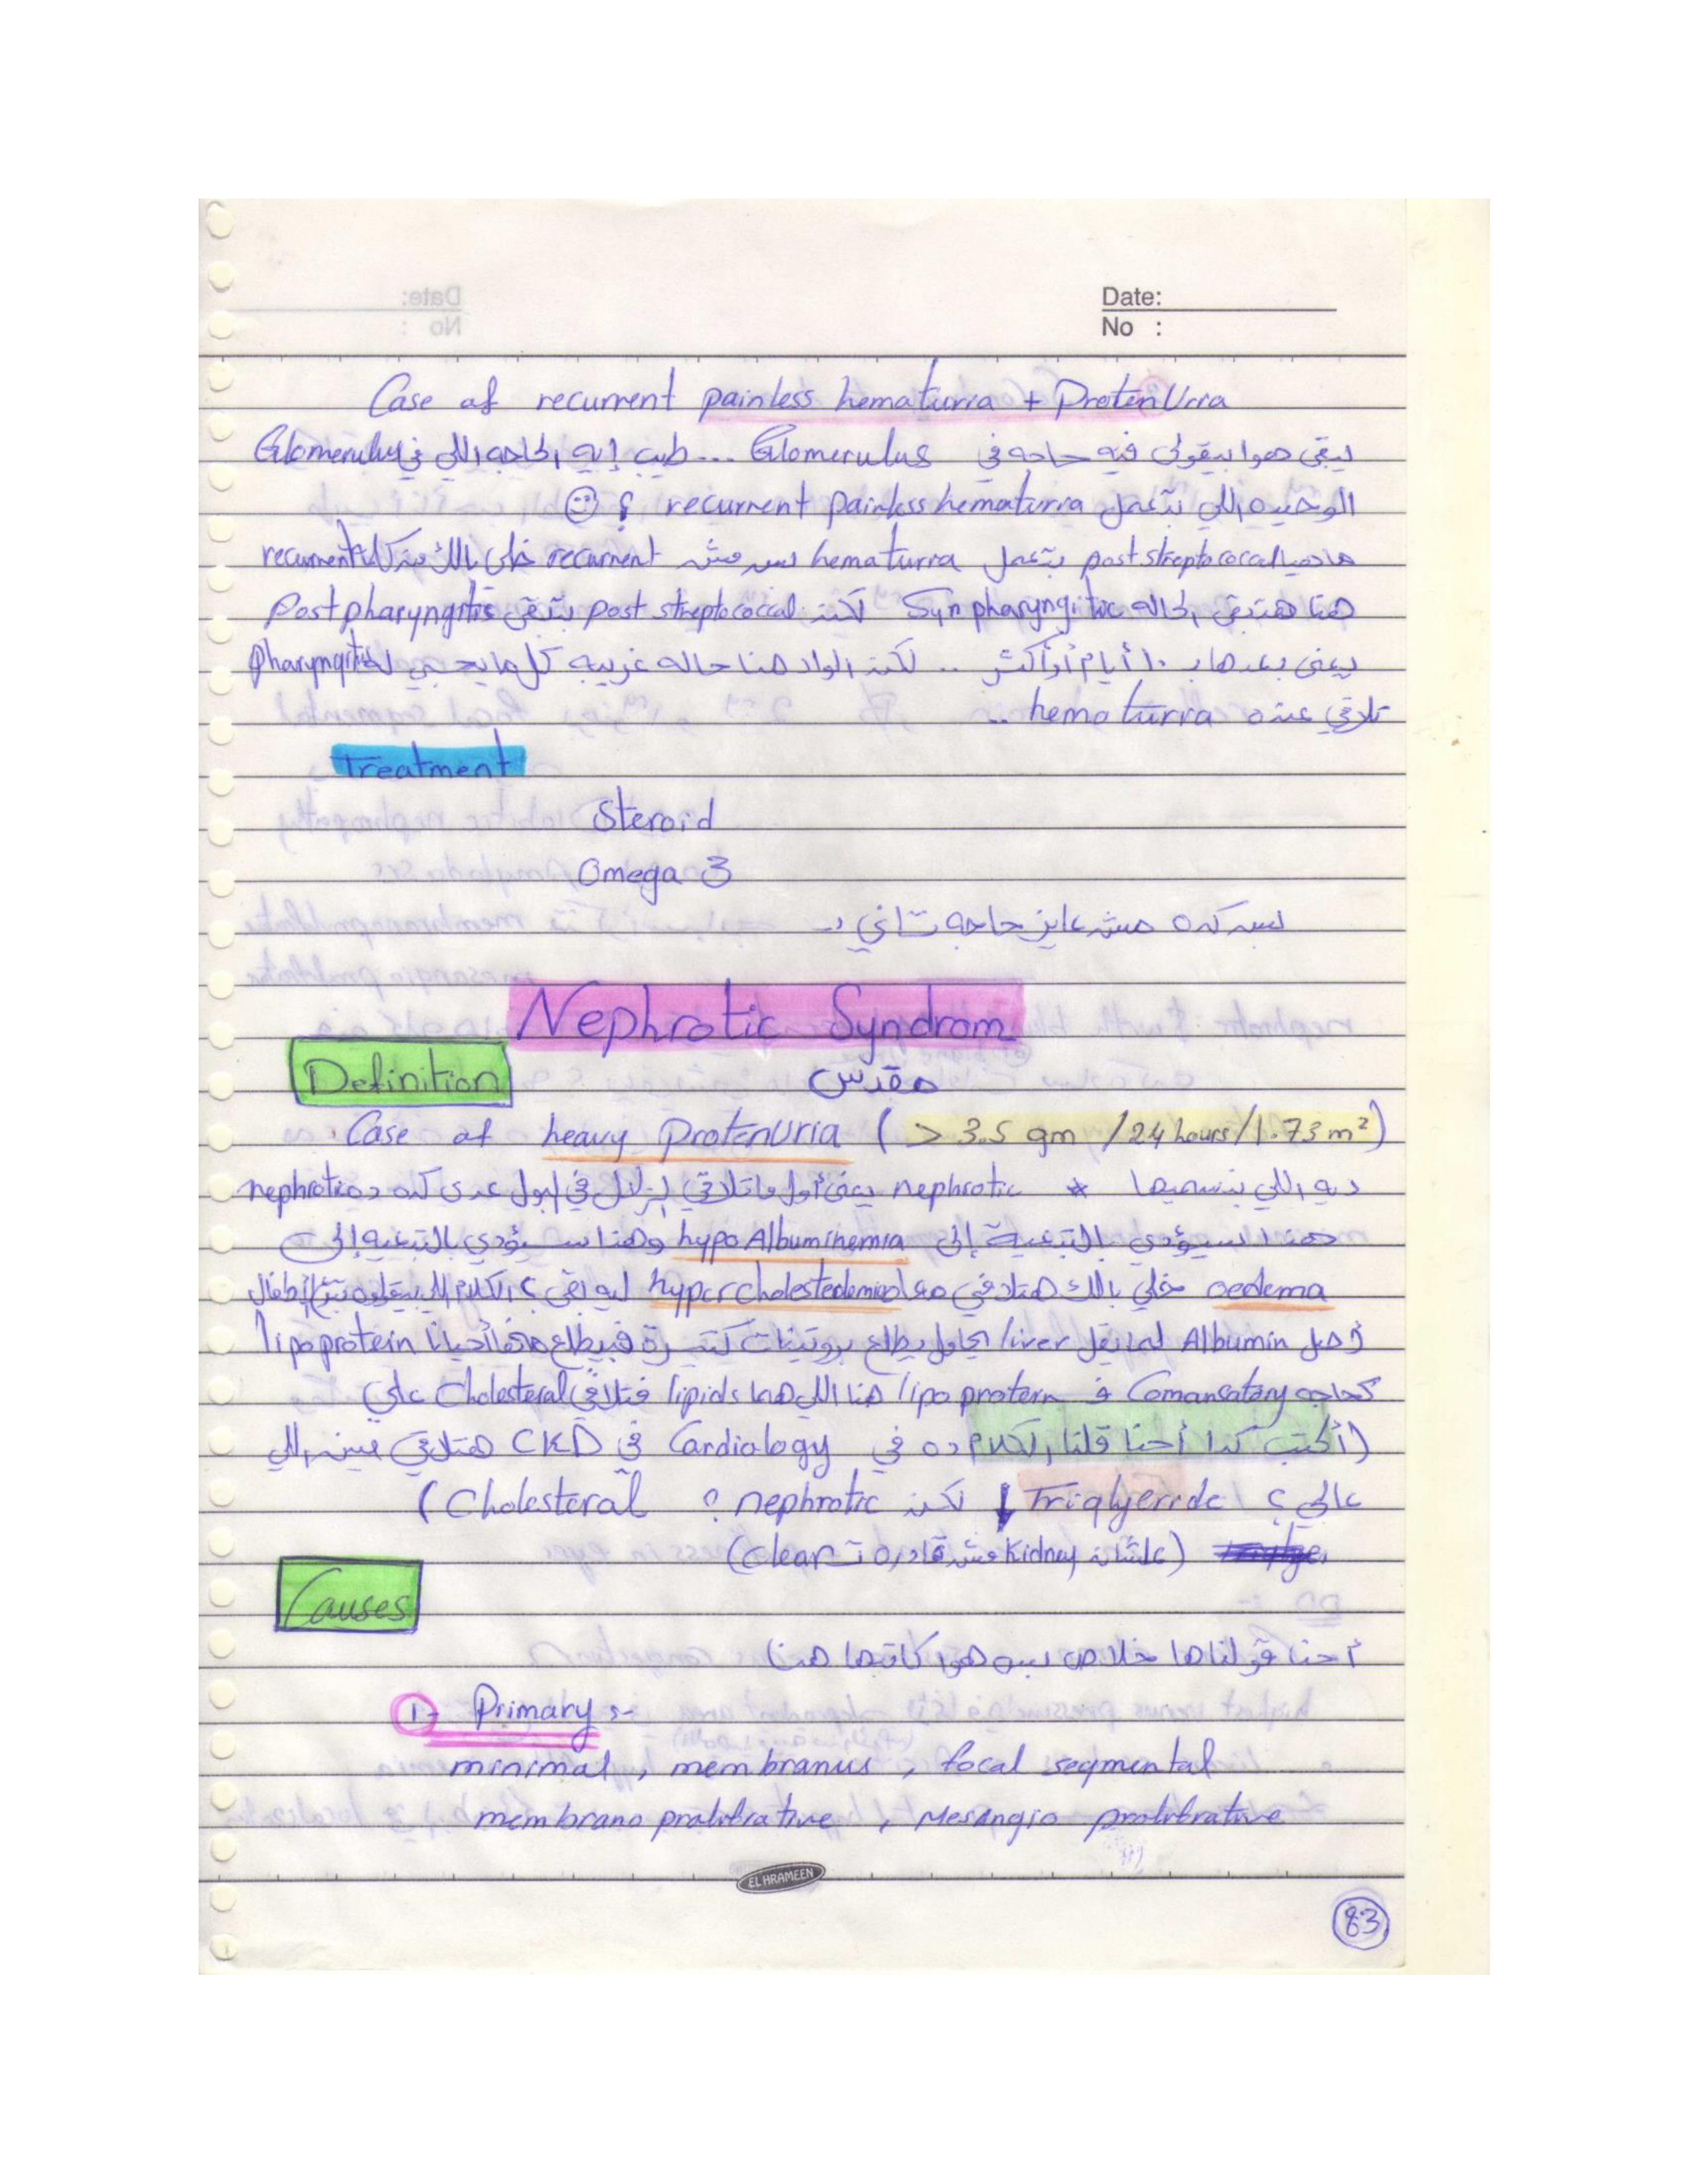 Date:
No :
Case of recurrent painless hematurra + Proten Urra
يبقى هوا بيقولى فيه حاجه في Glomerulus ... طيب إيه الحاجه اللي في Glomerulus
الوحيده اللي بتعمل recurrent painless hematurra ؟
post streptococcal بتعمل hematurra بس مش recurrent خلى بالك من كلمة recurrent
هنا هتبقى الحاله Syn pharyngitic لكن post streptococcal بتبقى Post pharyngitis
يعنى بعدها بـ ١٠ أيام أو أكثر .. لكن الواد هنا حاله غريبه كل ما يجي له Pharyngitis
تلاقي عنده hematurra ..
Treatment
Steroid
Omega 3
بس كده مش عايز حاجه تاني
Nephrotic Syndrom
Definition
مقدس
Case of heavy ProtenUria ( > 3.5 gm / 24 hours / 1.73 m²)
ديه اللي بنسميها * nephrotic يعنى أول ما تلاقي الزلال في البول عدى كده ده nephrotic
هذا سيؤدي بالتبعية إلى hypo Albuminemia وهذا سيؤدي بالتبعيه إلى
oedema خلي بالك هتلاقي معاه hypercholestedemia ليه بقى ؟ الكلام اللي بيقولوه بتوع الأطفال
أصل Albumin لما يقل liver يحاول يطلع بروتينات كتيرة فبيطلع معاها أحيانا lipoprotein
كحاجه Comansatary ف lipo protein هنا اللي هما lipids فتلاقي Cholesteral عالي
(أكتب كدا أحنا قلنا الكلام ده في Cardiology في CKD هتلاقي مين اللي
عالي ؟ Triglyeride ↓ لكن nephrotic ؟ Cholesteral )
(علشان Kidney مش قادره تـ clear)
Causes
أحنا قولناها خلاص بس هوا كاتبها هنا
1- Primary :-
minimal , membranus , focal segmental
membrano prolifrative , Mesangio prolifrative
EL HRAMEEN
83